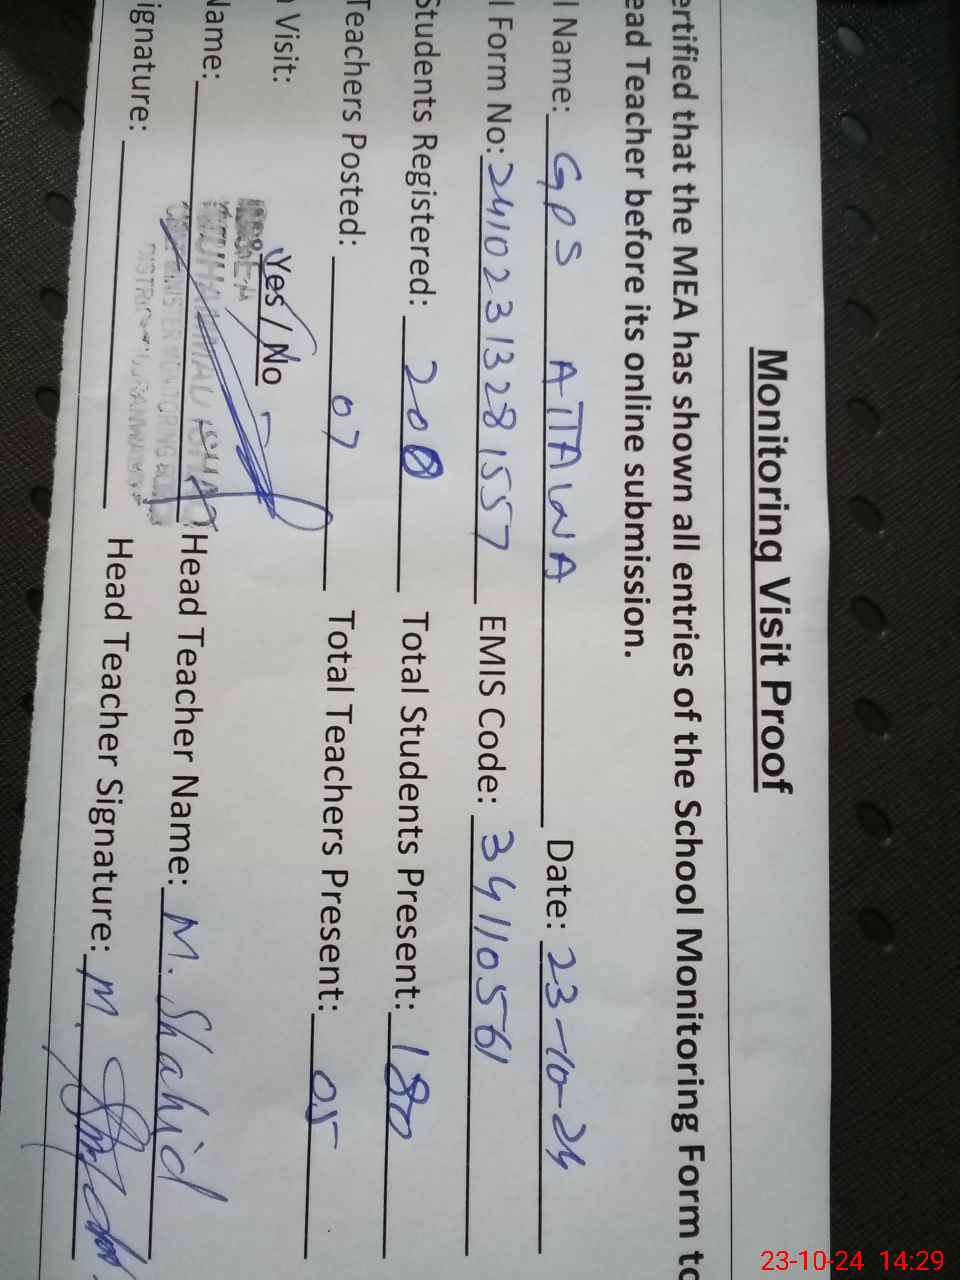 Monitoring Visit Proof
ertified that the MEA has shown all entries of the School Monitoring Form to
ead Teacher before its online submission.
l Name: GPS ATTAWA Date: 23-10-24
l Form No: 24102313281557 EMIS Code: 34110561
Students Registered: 200 Total Students Present: 180
Teachers Posted: 07 Total Teachers Present: 05
Visit: Yes / No
Name: Head Teacher Name: M. Shahid
ignature: Head Teacher Signature: M. Shahid
23-10-24 14:29